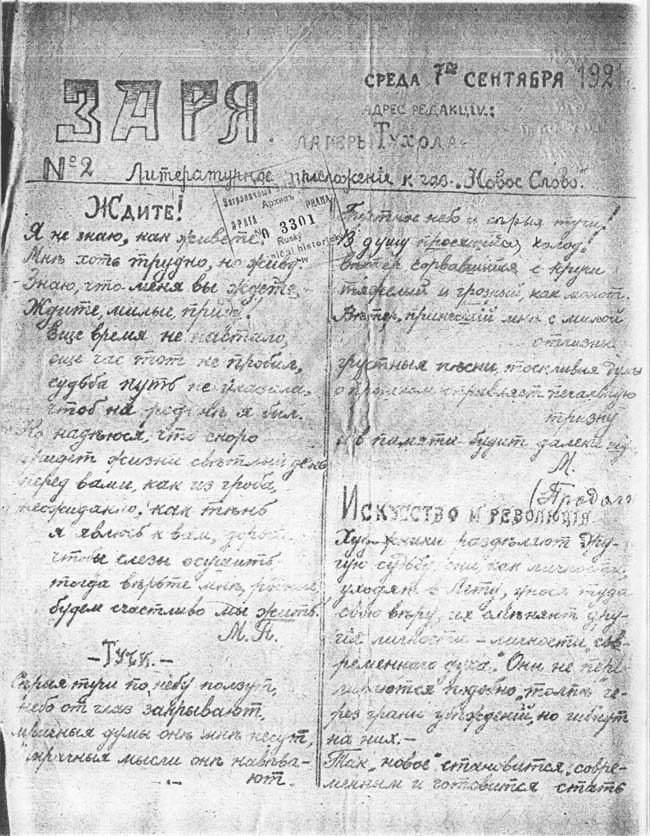 ЗАРЯ.
СРЕДА 7го СЕНТЯБРЯ 192
АДРЕС РЕДАКЦIИ:
ЛАГЕРЬ ТУХОЛА
№ 2 Литературное приложенiе к газ. „Новое Слово“.
Архивъ
ПРАГА PRAHA
№ 3301
Ruský
historický
Ждите!
Я не знаю, как живете.
Мнѣ хоть трудно, но живу.
Знаю, что меня вы ждете –
Ждите, милые, приду!
Еще время не настало,
еще час тот не пробил,
судьба путь не указала,
чтоб на родинѣ я был.
Но надѣюся, что скоро
придет жизни свѣтлый день
перед вами, как из гроба,
неожиданно, как тѣнь
я явлюсь к вам,
чтобы слезы осушить
тогда вѣрьте мнѣ,
будем счастливо мы жить!
М. П.
– ТУЧИ. –
Сѣрыя тучи по небу ползут,
небо от глаз закрывают
мрачныя думы онѣ мнѣ несут,
мрачныя мысли онѣ навѣва-
ют.
небо и сѣрыя тучи!
В душу холод!
Вѣтер сорвавшийся с кручи
тяжелый и грозный как молот.
Вѣтер, принесший мнѣ с милой
отчизны
грустныя пѣсни, тоскливыя думы
о прошлом справляет печальную
тризну
и в памяти будит далекiе
М.
(Продол
ИСКУССТВО И РЕВОЛЮЦIЯ
Художники раздѣляют дру-
гую судьбу, они, как личности,
уходят в Лету, унося туда
свою вѣру, их смѣняют дру-
гiя личности – личности „сов-
ременнаго духа“. Они не пере-
подобно „толпѣ“ че-
рез грани убѣжденiй, но гибнут
на них. –
Так „новое“ становится „совре-
менным и готовится стать